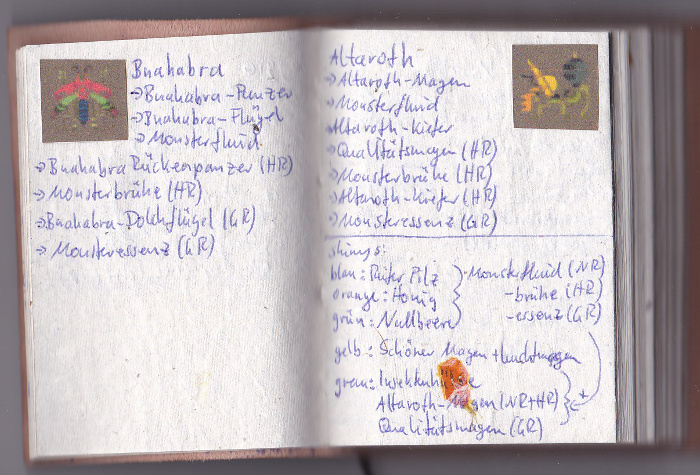 Bnahabra
→ Bnahabra-Panzer
→ Bnahabra-Flügel
→ Monsterfluid
→ Bnahabra Rückenpanzer (HR)
→ Monsterbrühe (HR)
→ Bnahabra-Dolchflügel (GR)
→ Monsteressenz (GR)
Altaroth
→ Altaroth-Magen
→ Monsterfluid
Altaroth-Kiefer
→ Qualitätsmagen (HR)
→ Monsterbrühe (HR)
→ Altaroth-Kiefer (HR)
→ Monsteressenz (GR)
shinys:
blau: Reifer Pilz
orange: Honig
grün: Nullbeere
Monsterfluid (NR)
-brühe (HR)
-essenz (GR)
gelb: Schöner Magen + Leuchtmagen
grau:
Altaroth-Magen (NR+HR)
Qualitätsmagen (GR)